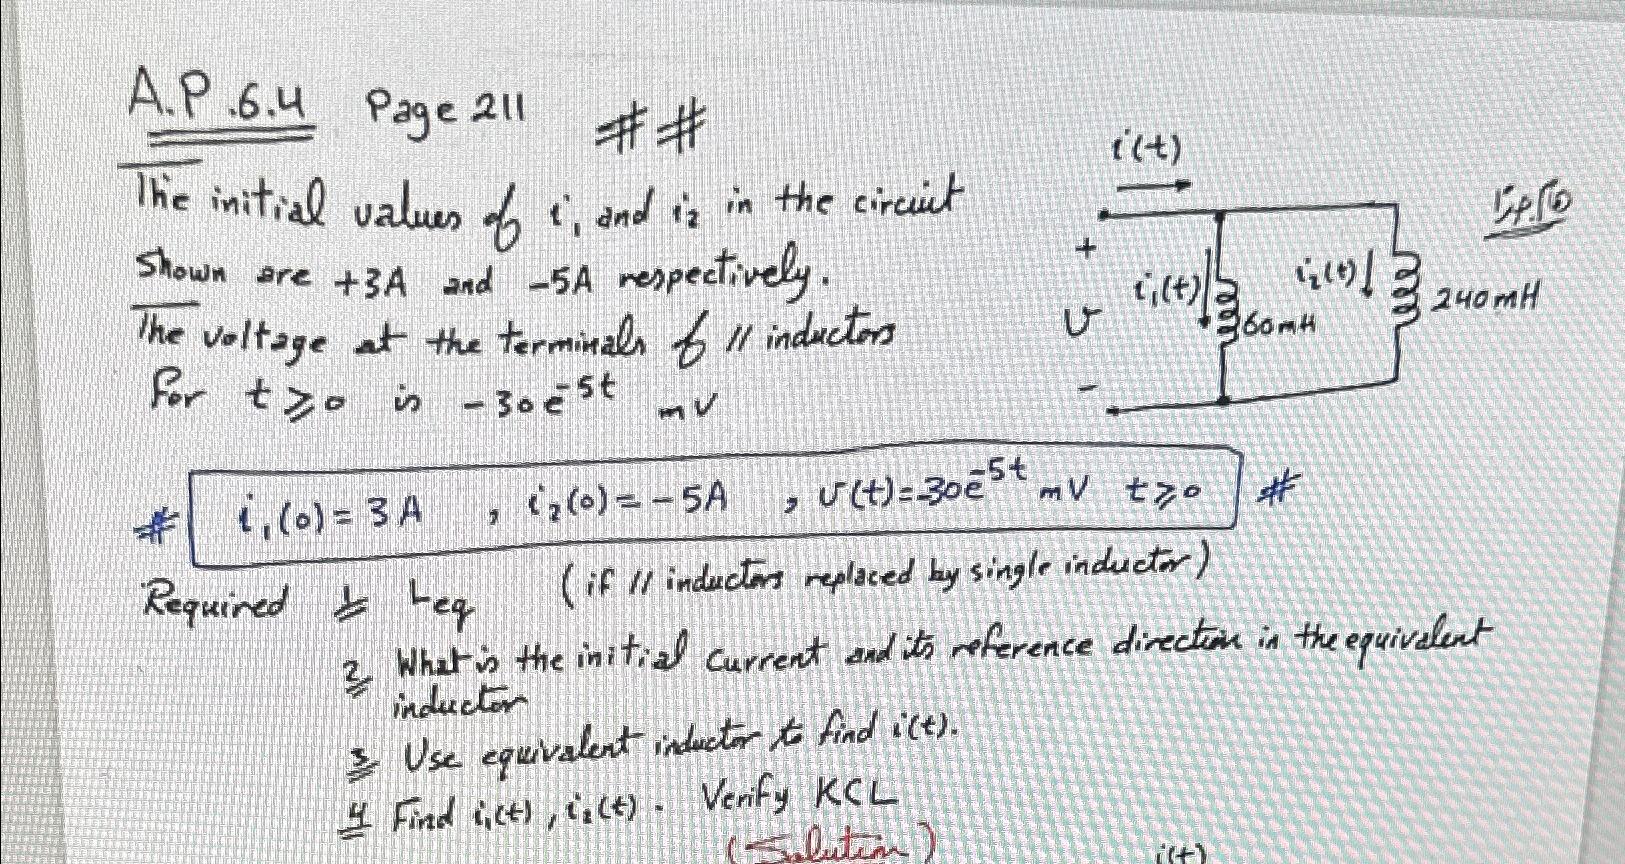 A.P.6.4 Page 211 ##
The initial values of i₁ and i₂ in the circuit
shown are +3A and -5A respectively.
The voltage at the terminals of // inductors
for t ≥ 0 is -30e⁻⁵ᵗ mV
i(t)
+
v
-
i₁(t)
60mH
i₂(t)
240mH
# i₁(0) = 3A , i₂(0) = -5A , v(t) = -30e⁻⁵ᵗ mV t ≥ 0 #
Required 1 Leq (if // inductors replaced by single inductor)
2 What is the initial current and its reference direction in the equivalent
inductor
3 Use equivalent inductor to find i(t).
4 Find i₁(t), i₂(t). Verify KCL
(Solution)
i(t)